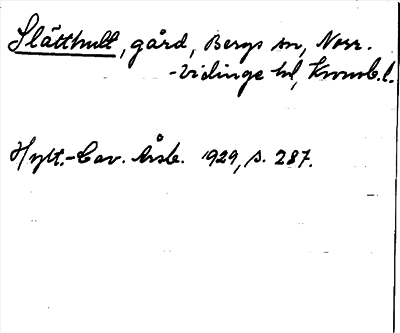 Slätthult, gård, Bergs sn, Norr-
-vidinge hd, Kronob. l.
Hylt.-Cav. Årsb. 1929, s. 287.